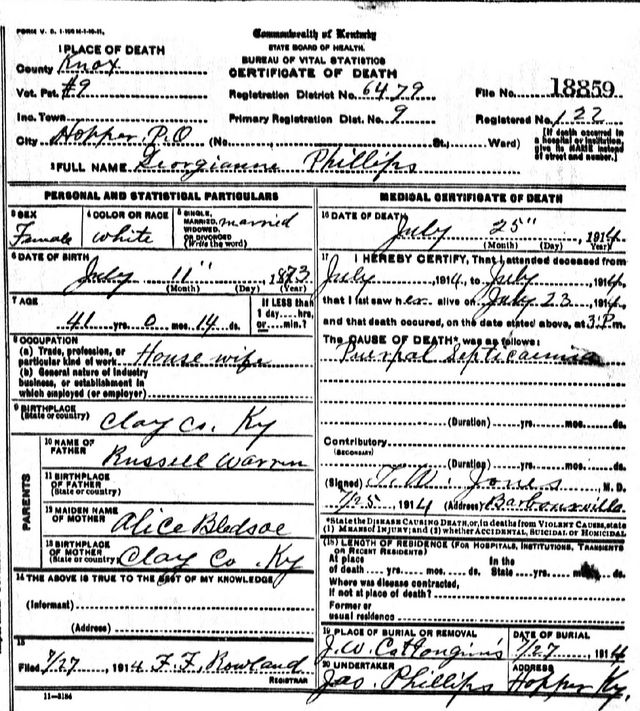 FORM V. S. 1-
Commonwealth of Kentucky
STATE BOARD OF HEALTH.
BUREAU OF VITAL STATISTICS
CERTIFICATE OF DEATH
1 PLACE OF DEATH
County Knox
Vot. Pct. #9
Registration District No. 6479
File No. 18859
Inc. Town
Primary Registration Dist. No. 9
Registered No. 122
City Hopper P.O (No. St.; Ward)
[If death occurred in a hospital or institution, give its NAME instead of street and number.]
2 FULL NAME Georgianne Phillips
PERSONAL AND STATISTICAL PARTICULARS
3 SEX
Female
4 COLOR OR RACE
white
5 SINGLE, MARRIED, WIDOWED, OR DIVORCED (Write the word)
married
6 DATE OF BIRTH
July 11" 1873
(Month) (Day) (Year)
7 AGE
41 yrs. 0 mos. 14 ds.
If LESS than 1 day....hrs, or....min.?
8 OCCUPATION
(a) Trade, profession, or particular kind of work House wife
(b) General nature of industry
business, or establishment in
which employed (or employer)
9 BIRTHPLACE
(State or country) Clay Co. Ky
PARENTS
10 NAME OF FATHER Russell Warren
11 BIRTHPLACE OF FATHER
(State or country)
12 MAIDEN NAME OF MOTHER Alice Bledsoe
13 BIRTHPLACE OF MOTHER
(State or country) Clay Co. Ky
14 THE ABOVE IS TRUE TO THE BEST OF MY KNOWLEDGE
(Informant)
(Address)
15
Filed 7/27, 1914 F. F. Rowland
REGISTRAR
11-3184
MEDICAL CERTIFICATE OF DEATH
16 DATE OF DEATH
July 25" 1914
(Month) (Day) Year
17 I HEREBY CERTIFY, That I attended deceased from
July, 1914, to July 1914,
that I last saw her alive on July 23 1914,
and that death occurred, on the date stated above, at 3 P.m.
The CAUSE OF DEATH* was as follows:
Puerpal Septicaemia
(Duration) yrs. mos. ds.
Contributory
(SECONDARY)
(Duration) yrs. mos. ds.
(Signed) T. W. Jones M.D.
7/25 1914 (Address) Barbourville
*State the DISEASE CAUSING DEATH, or, in deaths from VIOLENT CAUSES, state
(1) MEANS OF INJURY; and (2) whether ACCIDENTAL, SUICIDAL OR HOMICIDAL
(18) LENGTH OF RESIDENCE (FOR HOSPITALS, INSTITUTIONS, TRANSIENTS
OR RECENT RESIDENTS)
At place of death yrs. mos. ds. In the State yrs. mos. ds.
Where was disease contracted,
if not at place of death?
Former or
usual residence
19 PLACE OF BURIAL OR REMOVAL
DATE OF BURIAL
J. W. 7/27 1914
20 UNDERTAKER
ADDRESS
Jas. Phillips Hopper Ky.